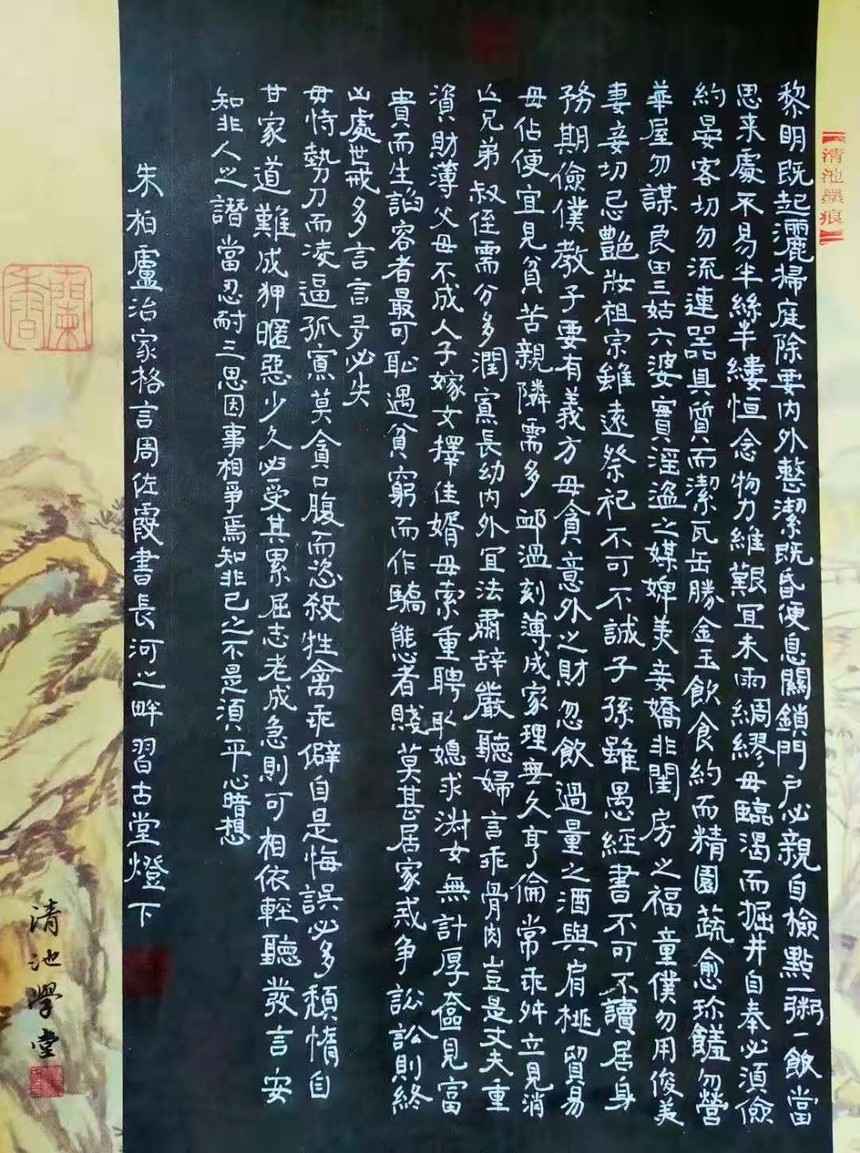 清池墨痕
黎明既起灑掃庭除要内外整潔既昏便息關鎖門户必親自檢點一粥一飲當
思来處不易半絲半縷恒念物力維艱宜未雨綢繆毋臨渴而掘井自奉必須儉
約晏客切勿流連器具質而潔瓦缶勝金玉飲食約而精園蔬愈珍饈勿營
華屋勿謀良田三姑六婆實淫盗之媒婢美妾嬌非閨房之福童僕勿用俊美
妻妾切忌艶妝祖宗雖遠祭祀不可不誠子孫雖愚經書不可不讀居身
務期儉僕教子要有義方毋貪意外之財忽飲過量之酒與肩桃貿易
毋佔便宜見貧苦親隣需多卹溫刻薄成家理無久亨倫常乖舛立見消
亾兄弟叔侄需分多潤寡長幼内外宜法肅辞嚴聽婦言乖骨肉豈是丈夫重
資財薄父母不成人子嫁女擇佳婿毋索重聘取媳求淑女無計厚奩見富
貴而生諂容者最可恥遇貧窮而作驕態者賤莫甚居家戒争訟訟則終
凶處世戒多言言多必失
毋恃勢力而淩逼孤寡莫貪口腹而恣殺牲禽乖僻自是悔誤必多頹惰自
甘家道難成狎暱惡少久必受其累屈志老成急則可相依輕聽發言安
知非人之譖當忍耐三思因事相爭焉知非已之不是湏平心暗想
朱柏廬治家格言周佐霞書長河之畔習古堂燈下
清池學堂